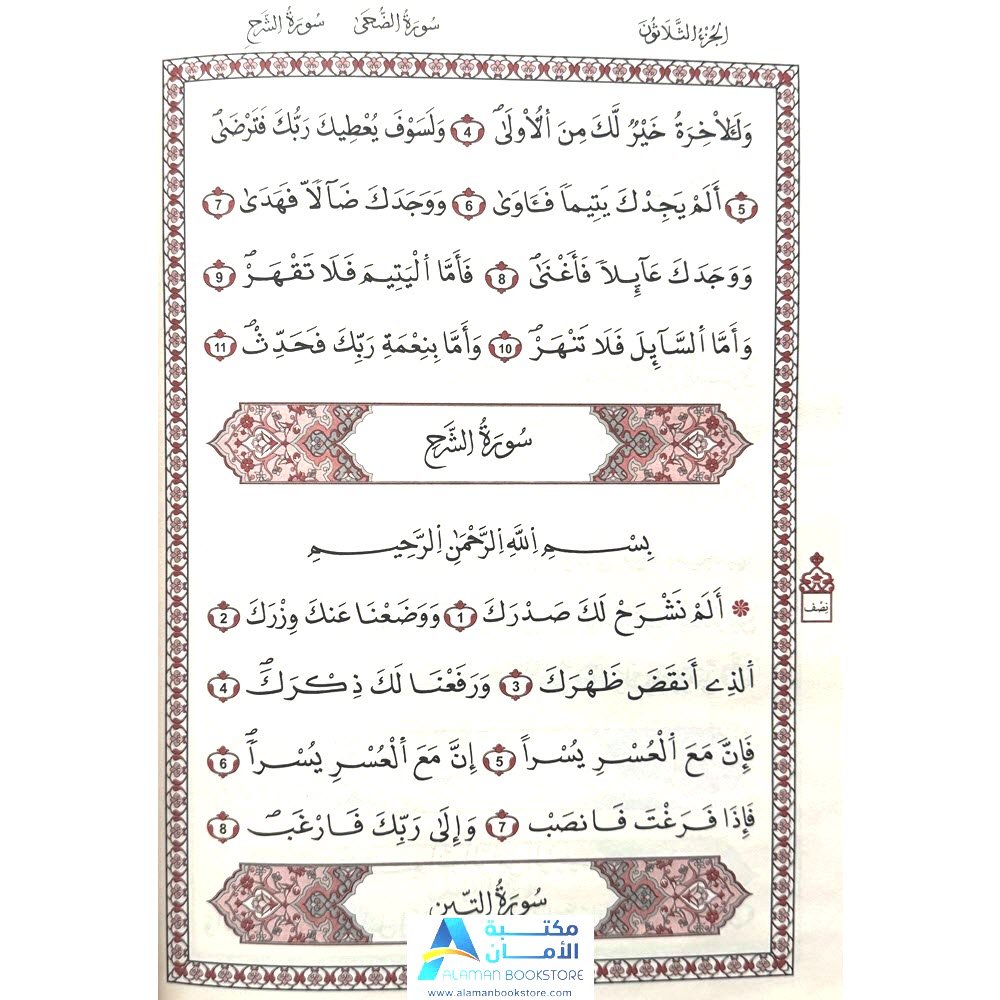 الجزء الثلاثون سورة الضحى سورة الشرح
وَلَلَاخِرَةُ خَيْرٌ لَّكَ مِنَ اَلُاولَىٰۖ 4 وَلَسَوْفَ يُعْطِيكَ رَبُّكَ فَتَرْضَىٰۖ
5 أَلَمْ يَجِدْكَ يَتِيماٗ فَـَٔاوَىٰ 6 وَوَجَدَكَ ضَآلّاٗ فَهَدَىٰ 7
وَوَجَدَكَ عَآئِلاٗ فَأَغْنَىٰۖ 8 فَأَمَّا اَلْيَتِيمَ فَلَا تَقْهَرْۖ 9
وَأَمَّا اَلسَّآئِلَ فَلَا تَنْهَرْۖ 10 وَأَمَّا بِنِعْمَةِ رَبِّكَ فَحَدِّثْۖ 11
سُورَةُ الشَّرْحِ
بِسْمِ اِللَّهِ اِلرَّحْمَٰنِ اِلرَّحِيمِ
أَلَمْ نَشْرَحْ لَكَ صَدْرَكَ 1 وَوَضَعْنَا عَنكَ وِزْرَكَ 2
نِصْف
اَلذِےٓ أَنقَضَ ظَهْرَكَ 3 وَرَفَعْنَا لَكَ ذِكْرَكَۖ 4
فَإِنَّ مَعَ اَلْعُسْرِ يُسْراً 5 اِنَّ مَعَ اَلْعُسْرِ يُسْراٗۖ 6
فَإِذَا فَرَغْتَ فَانصَبْ 7 وَإِلَىٰ رَبِّكَ فَارْغَبۖ 8
سُورَةُ التِّينِ
مكتبة
الأمان
ALAMAN BOOKSTORE
www.alamanbookstore.com